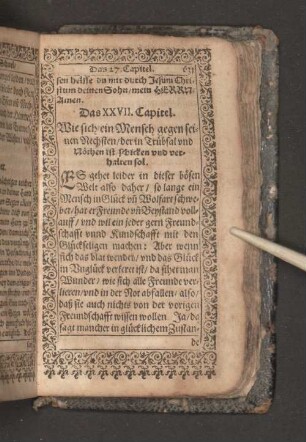 Das 27. Capitel.
sen helffe du mir durch Jesum Chri-
stum deinen Sohn/mein HERRN
Amen.
Das XXVII. Capitel.
Wie sich ein Mensch gegen sei-
nen Nechsten/der in Trübsal vnd
Nöhten ist schicken vnd ver-
halten sol.
ES gehet leider in dieser bösen
Welt also daher/ so lange ein
Mensch in Glück vñ Wolfart schwe-
bet/hat er Freunde vñ Beystand voll-
auff/ vnd wil ein jeder gern Freund-
schafft vnd Kundschafft mit den
Glückseligen machen: Aber wenn
sich das blat wendet/ vnd das Glück
in Vnglück verkeret ist/ da sihet man
Wunder/ wie sich alle Freunde ver-
lieren/vnd in der Not abfallen/ also/
daß sie auch nichts von der vorigen
Freundschafft wissen wollen Ja/da
sagt mancher in glücklichem Zustan-
de